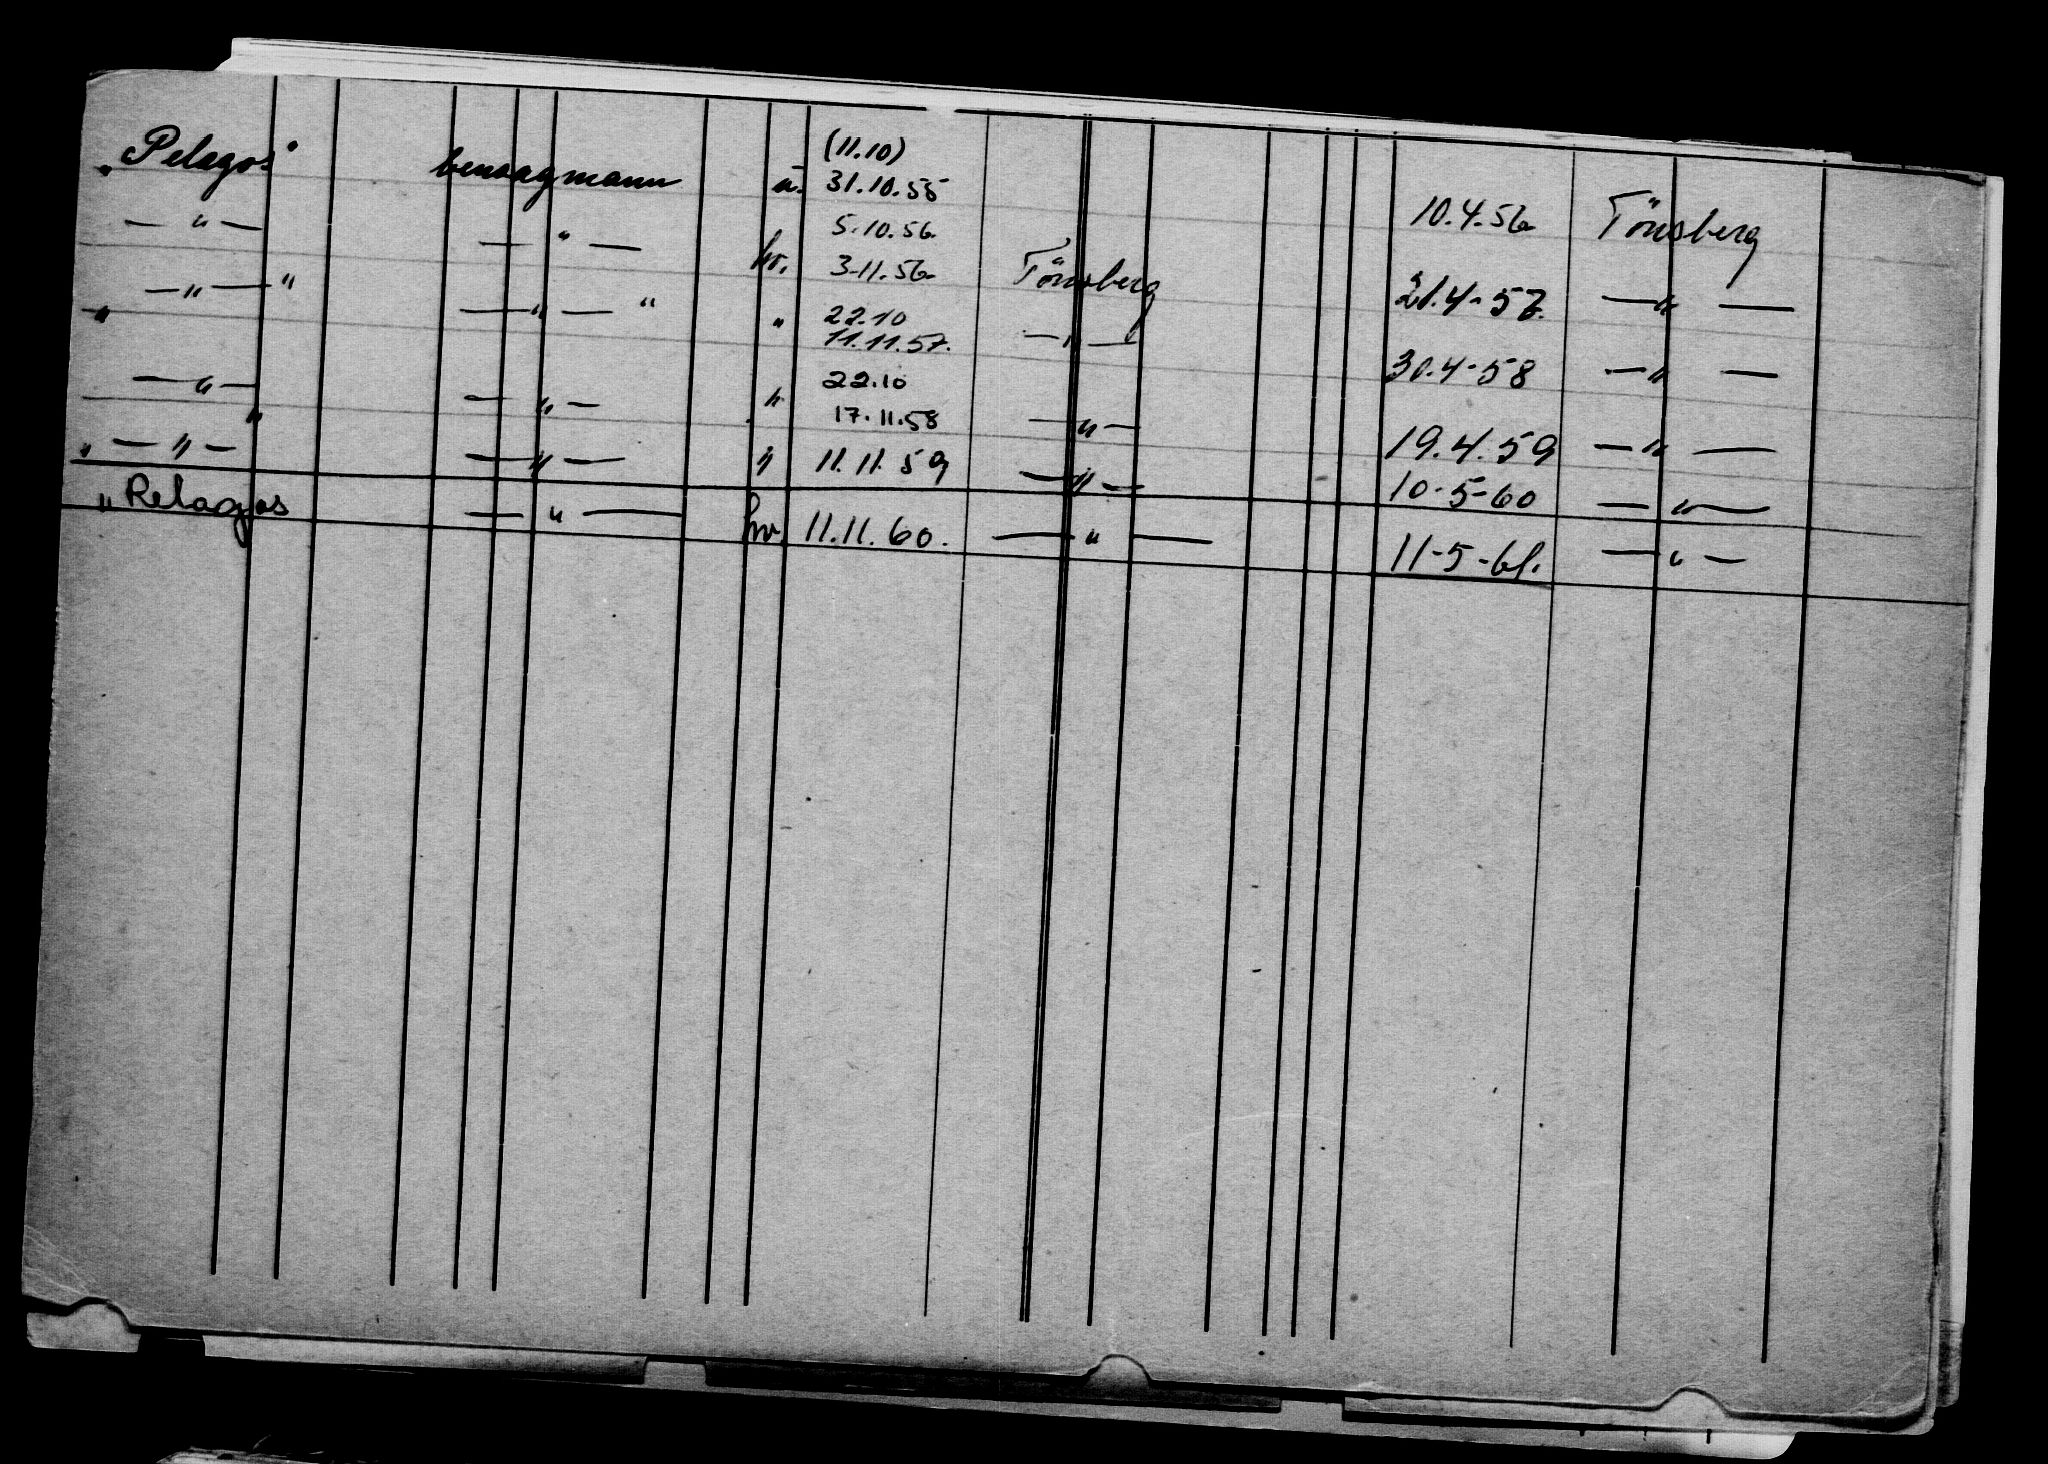 (11.10)
"Pelagos" bensagmann u. 31.10.55 10.4.56 Tönsberg
5.10.56.
— " — — " — hv. 3-11.56 Tönsberg 21.4-57. — " —
22.10
— " — " — " — " " 11.11.57. — " — 30.4-58 — " —
22.10
" — " — — " — " 17.11.58 — " — 19.4.59 — " —
" — " — — " — " 11.11.59 — " — 10-5-60 — " —
"Pelagos — " — hv. 11.11.60. — " — 11-5-61. — " —